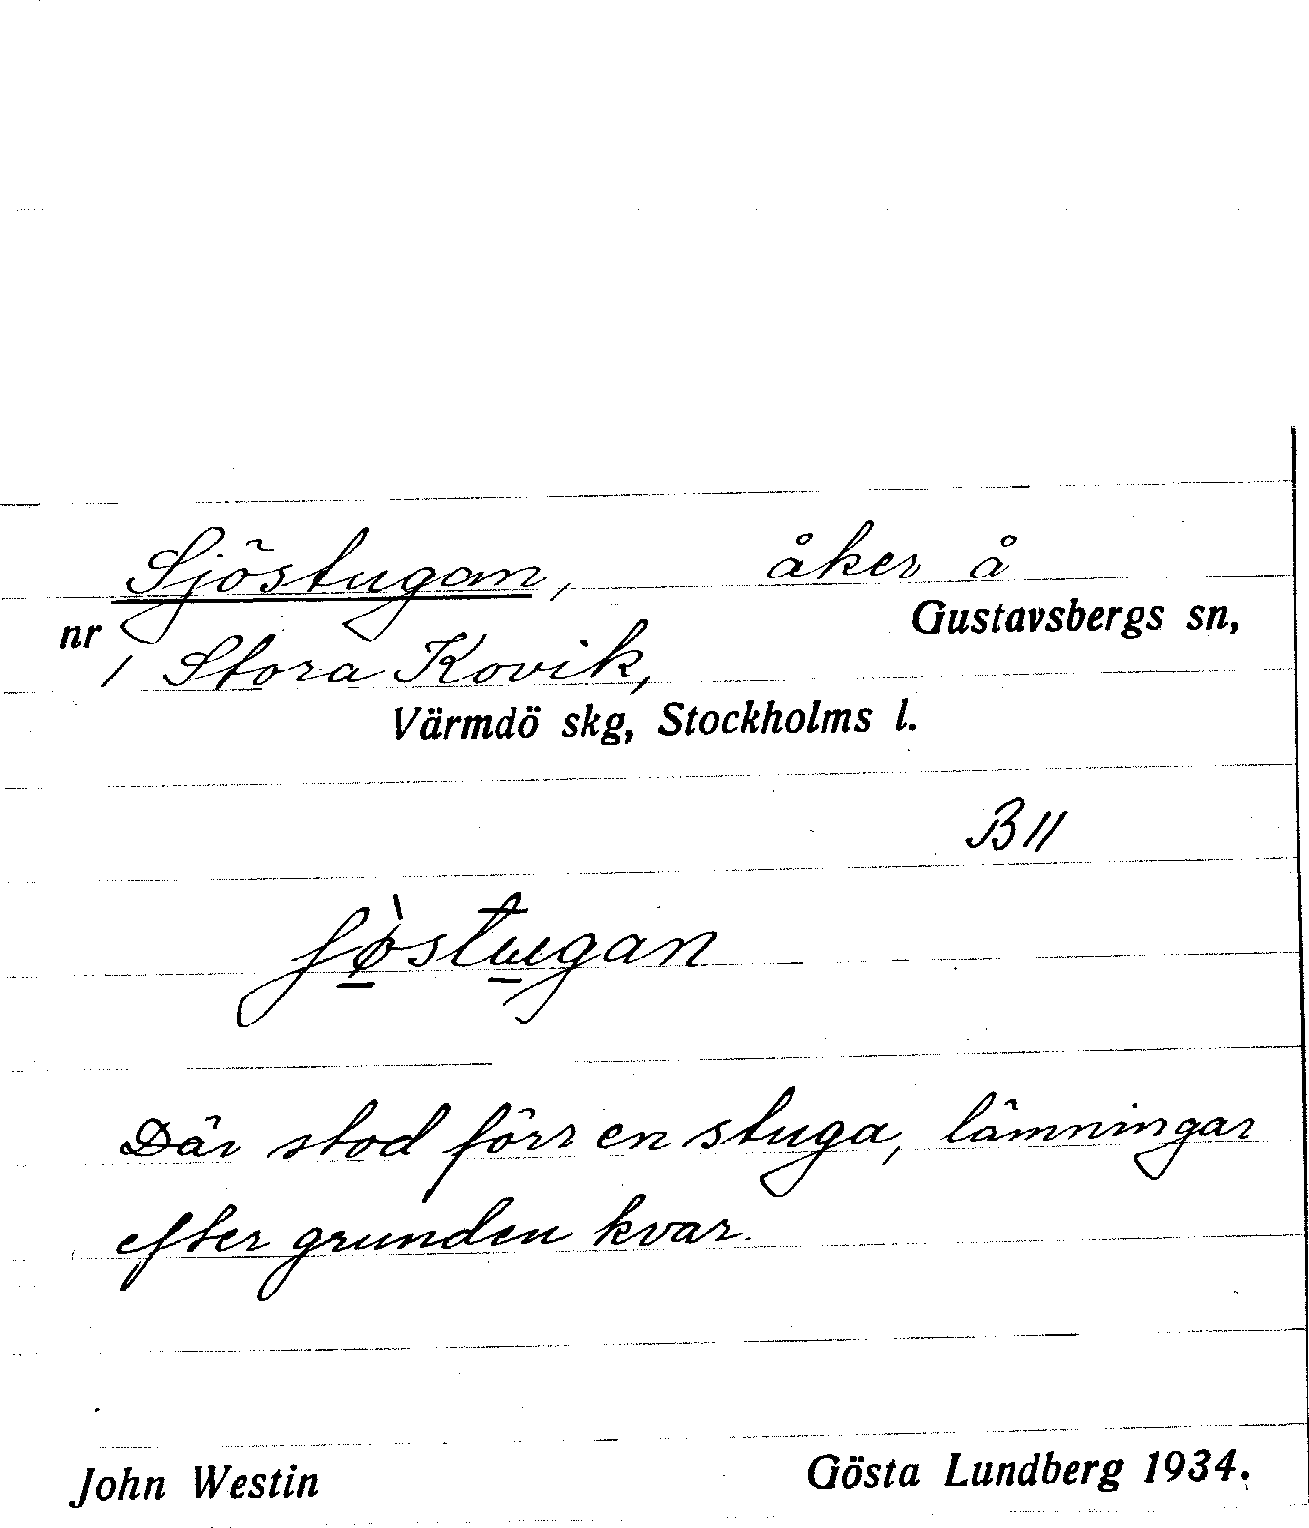 Sjöstugan, åker å
nr Gustavsbergs sn,
1 Stora Kovik,
Värmdö skg, Stockholms l.
B II
ʃø̀stugan
Där stod förr en stuga, lämningar
efter grunden kvar.
John Westin Gösta Lundberg 1934.